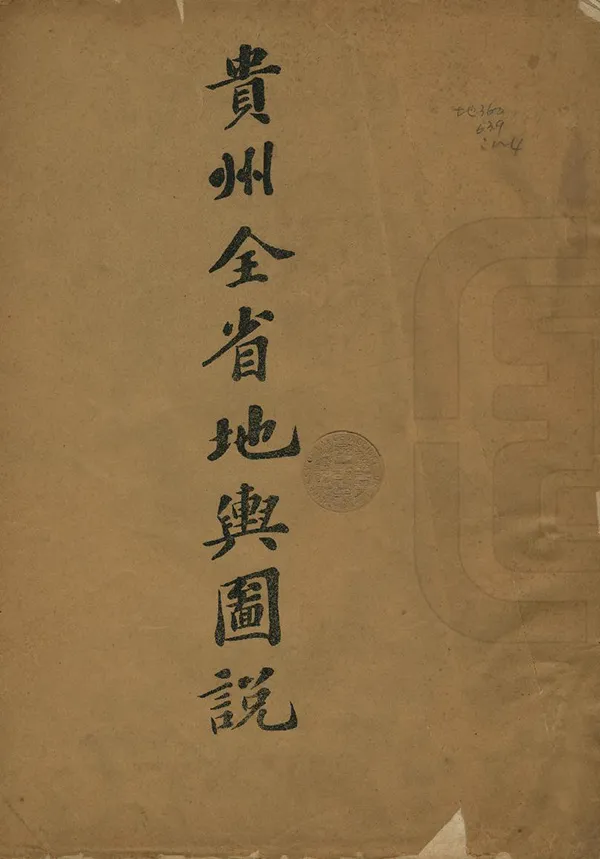 貴州全省地輿圖說
地360
639